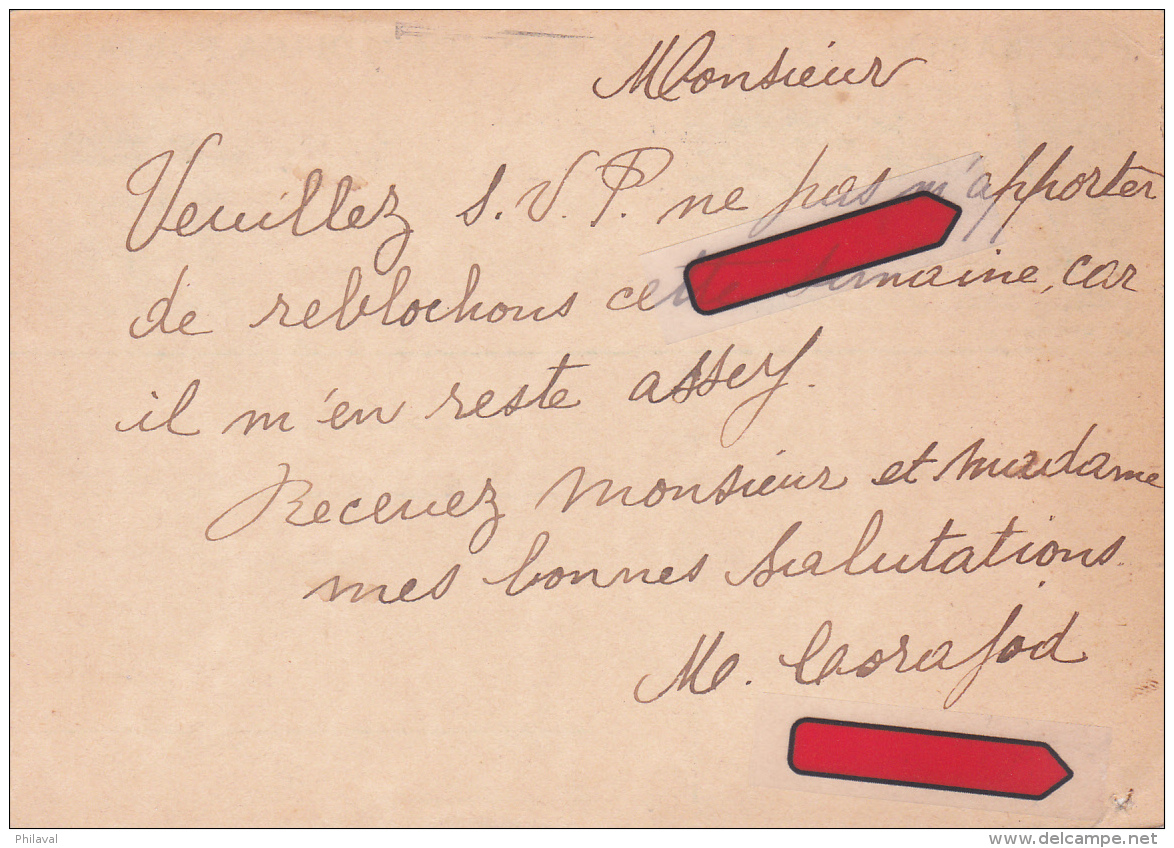 Monsieur
Veuillez S.V.P. ne pas m'apporter
de reblochons cette semaine, car
il m'en reste assez.
Recevez monsieur et madame
mes bonnes salutations.
M.
Philaval
www.delcampe.net